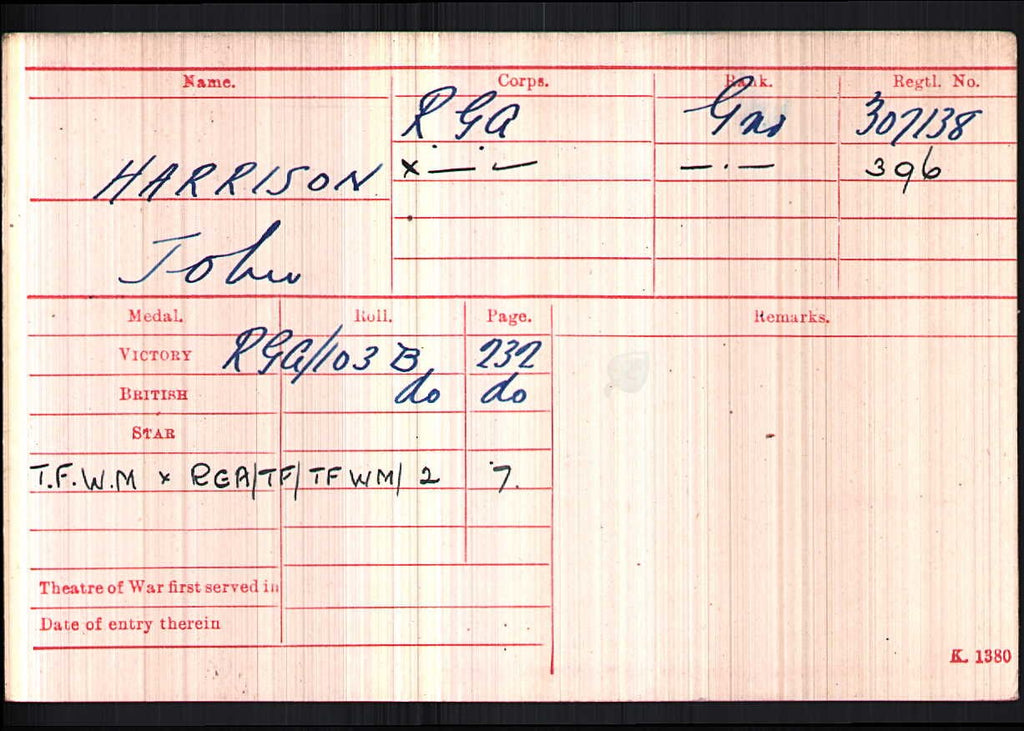 Name. Corps. Rank. Regtl. No.
RGA Gnr 307138
HARRISON x — · — — · — 396
John
Medal. Roll. Page. Remarks.
VICTORY RGA/103 B 232
BRITISH do do
STAR
T.F.W.M x RGA/TF/TFWM/2 7.
Theatre of War first served in
Date of entry therein
K. 1380